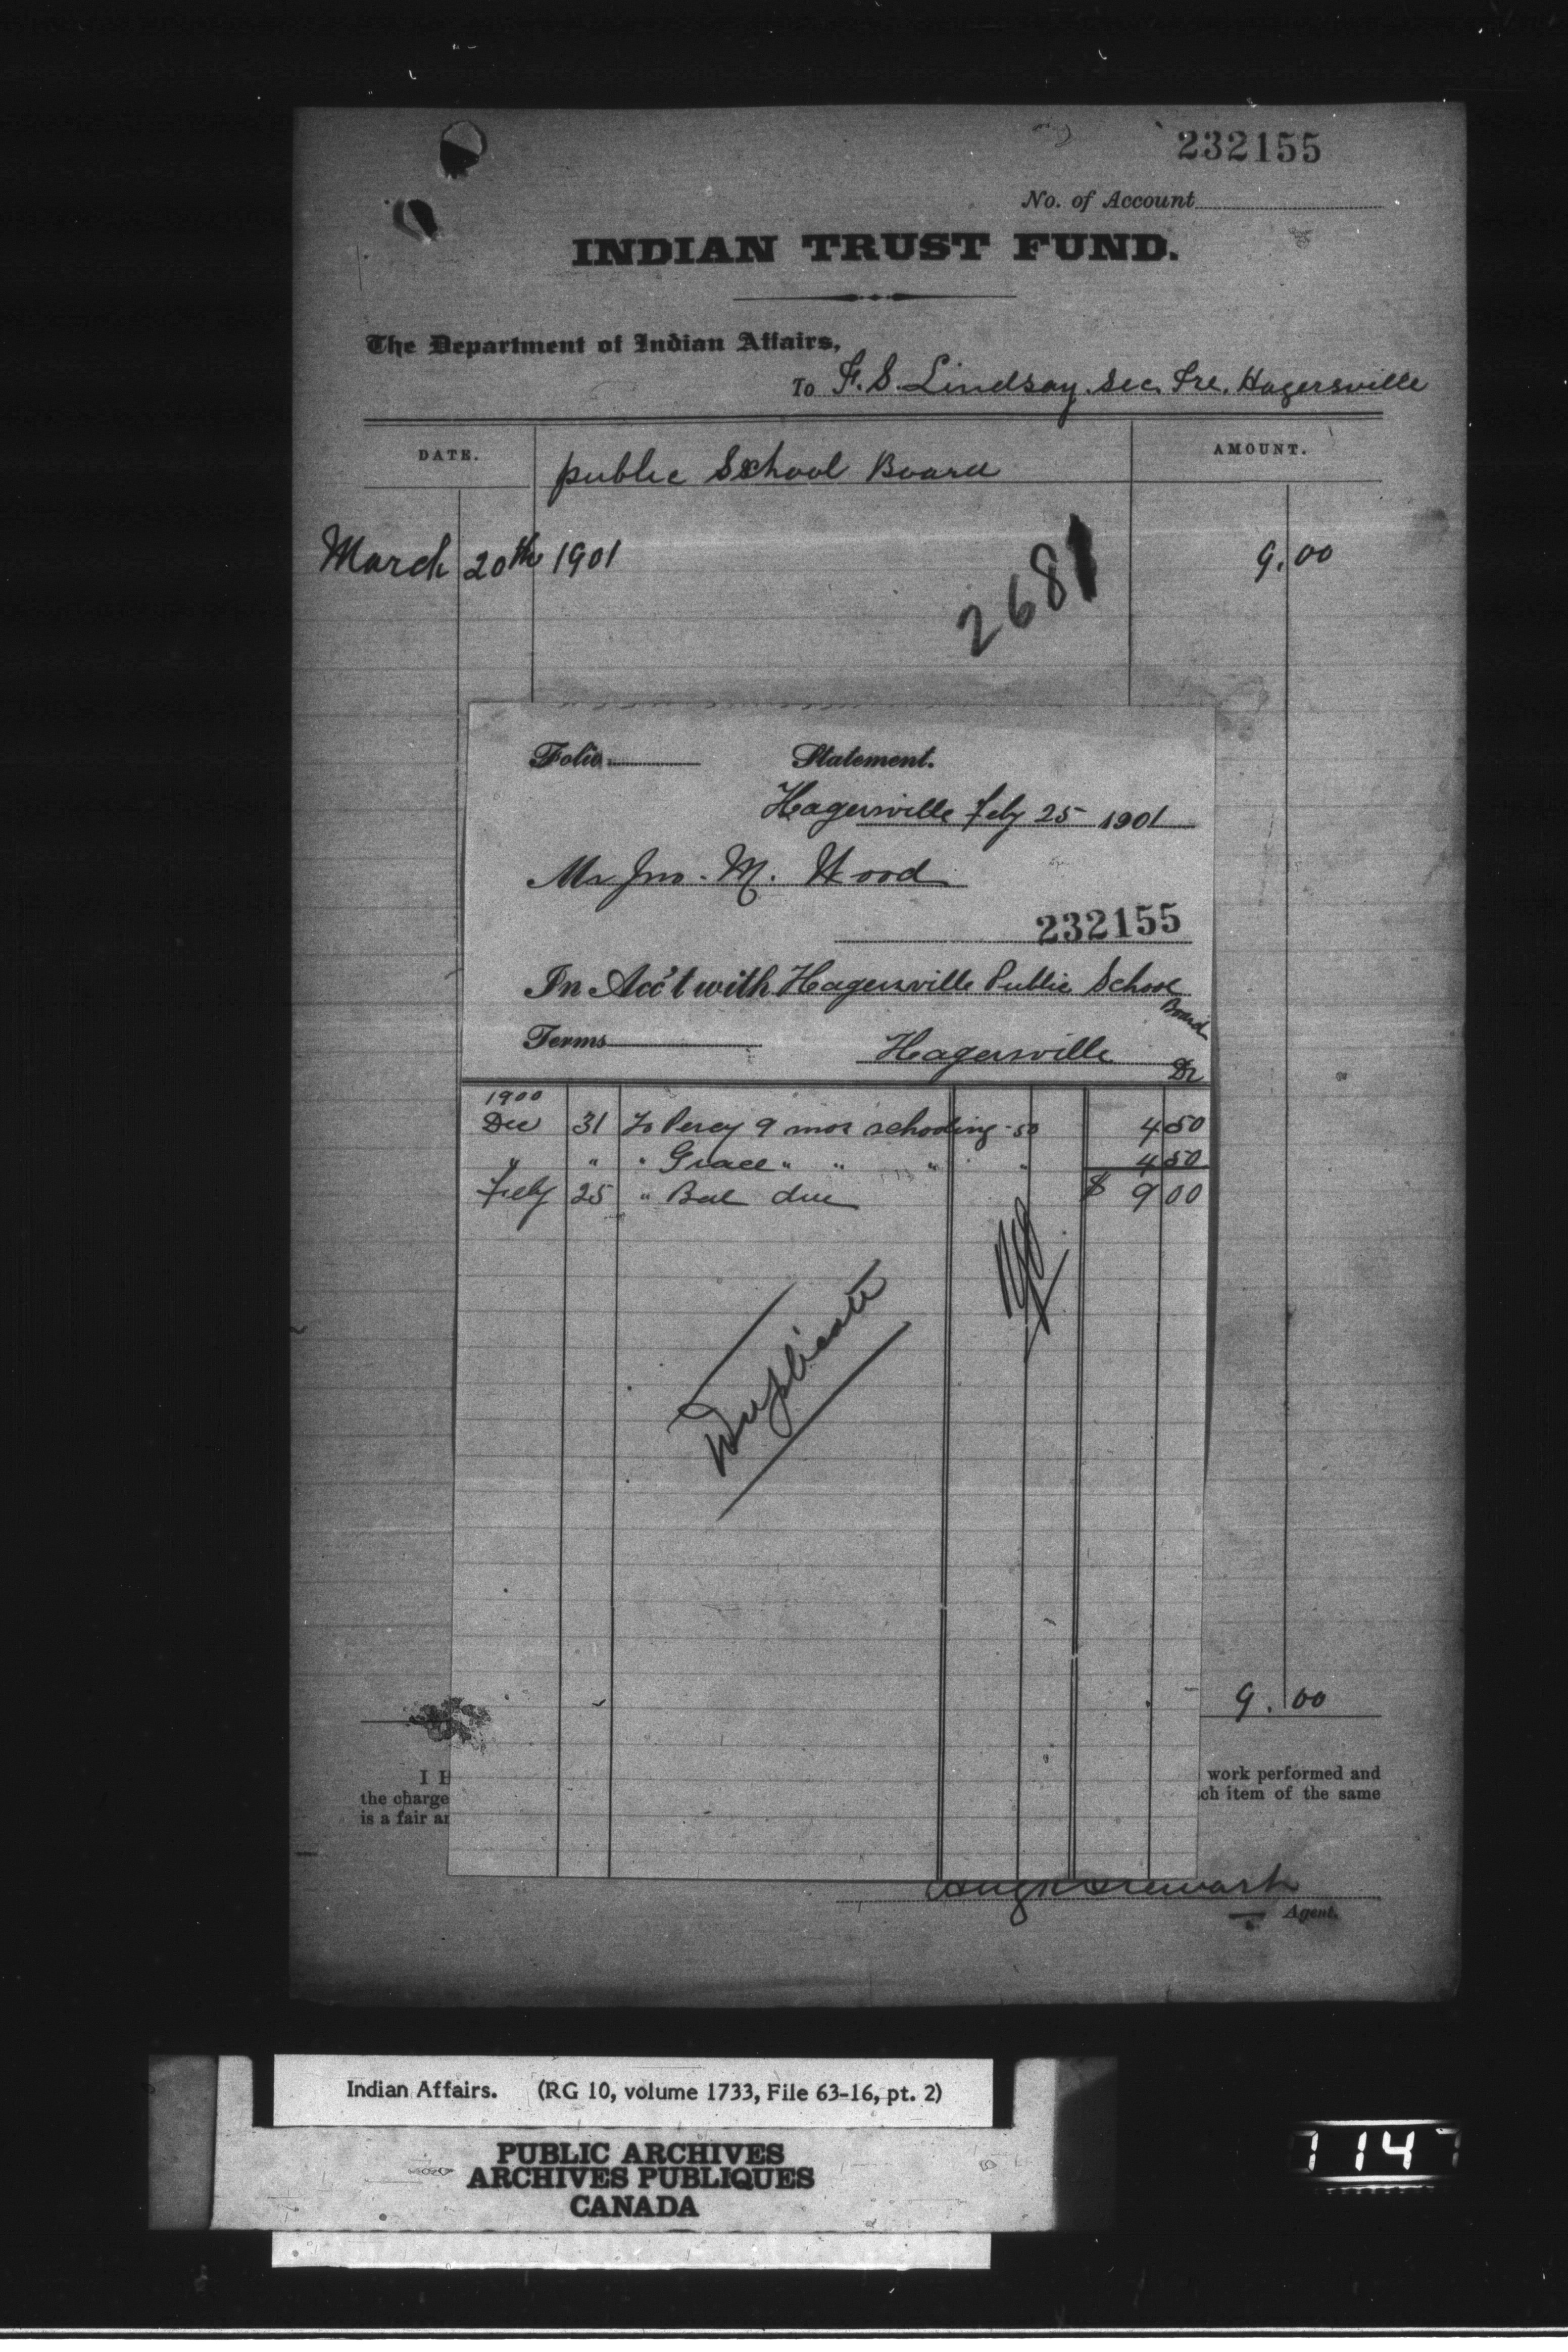 232155
No. of Account
INDIAN TRUST FUND.
The Department of Indian Affairs,
To F. S. Lindsay. Sec. Tre. Hagersville
DATE. public School Board AMOUNT.
March 20th 1901 9.00
2681
Folio Statement.
Hagersville Feby 25 1901
Mr Jno. M. Wood
232155
In Acc't with Hagersville Public School
Board
Terms Hagersville
Dr
1900
Dec 31 To Percy 9 mos schooling .50 4 50
" " " Grace " " " " 4 50
Feby 25 " Bal due $ 9 00
Duplicate
9.00
I H
work performed and
the charge
ch item of the same
is a fair an
Hugh Stewart
Agent.
Indian Affairs. (RG 10, volume 1733, File 63-16, pt. 2)
PUBLIC ARCHIVES
ARCHIVES PUBLIQUES
CANADA
1147